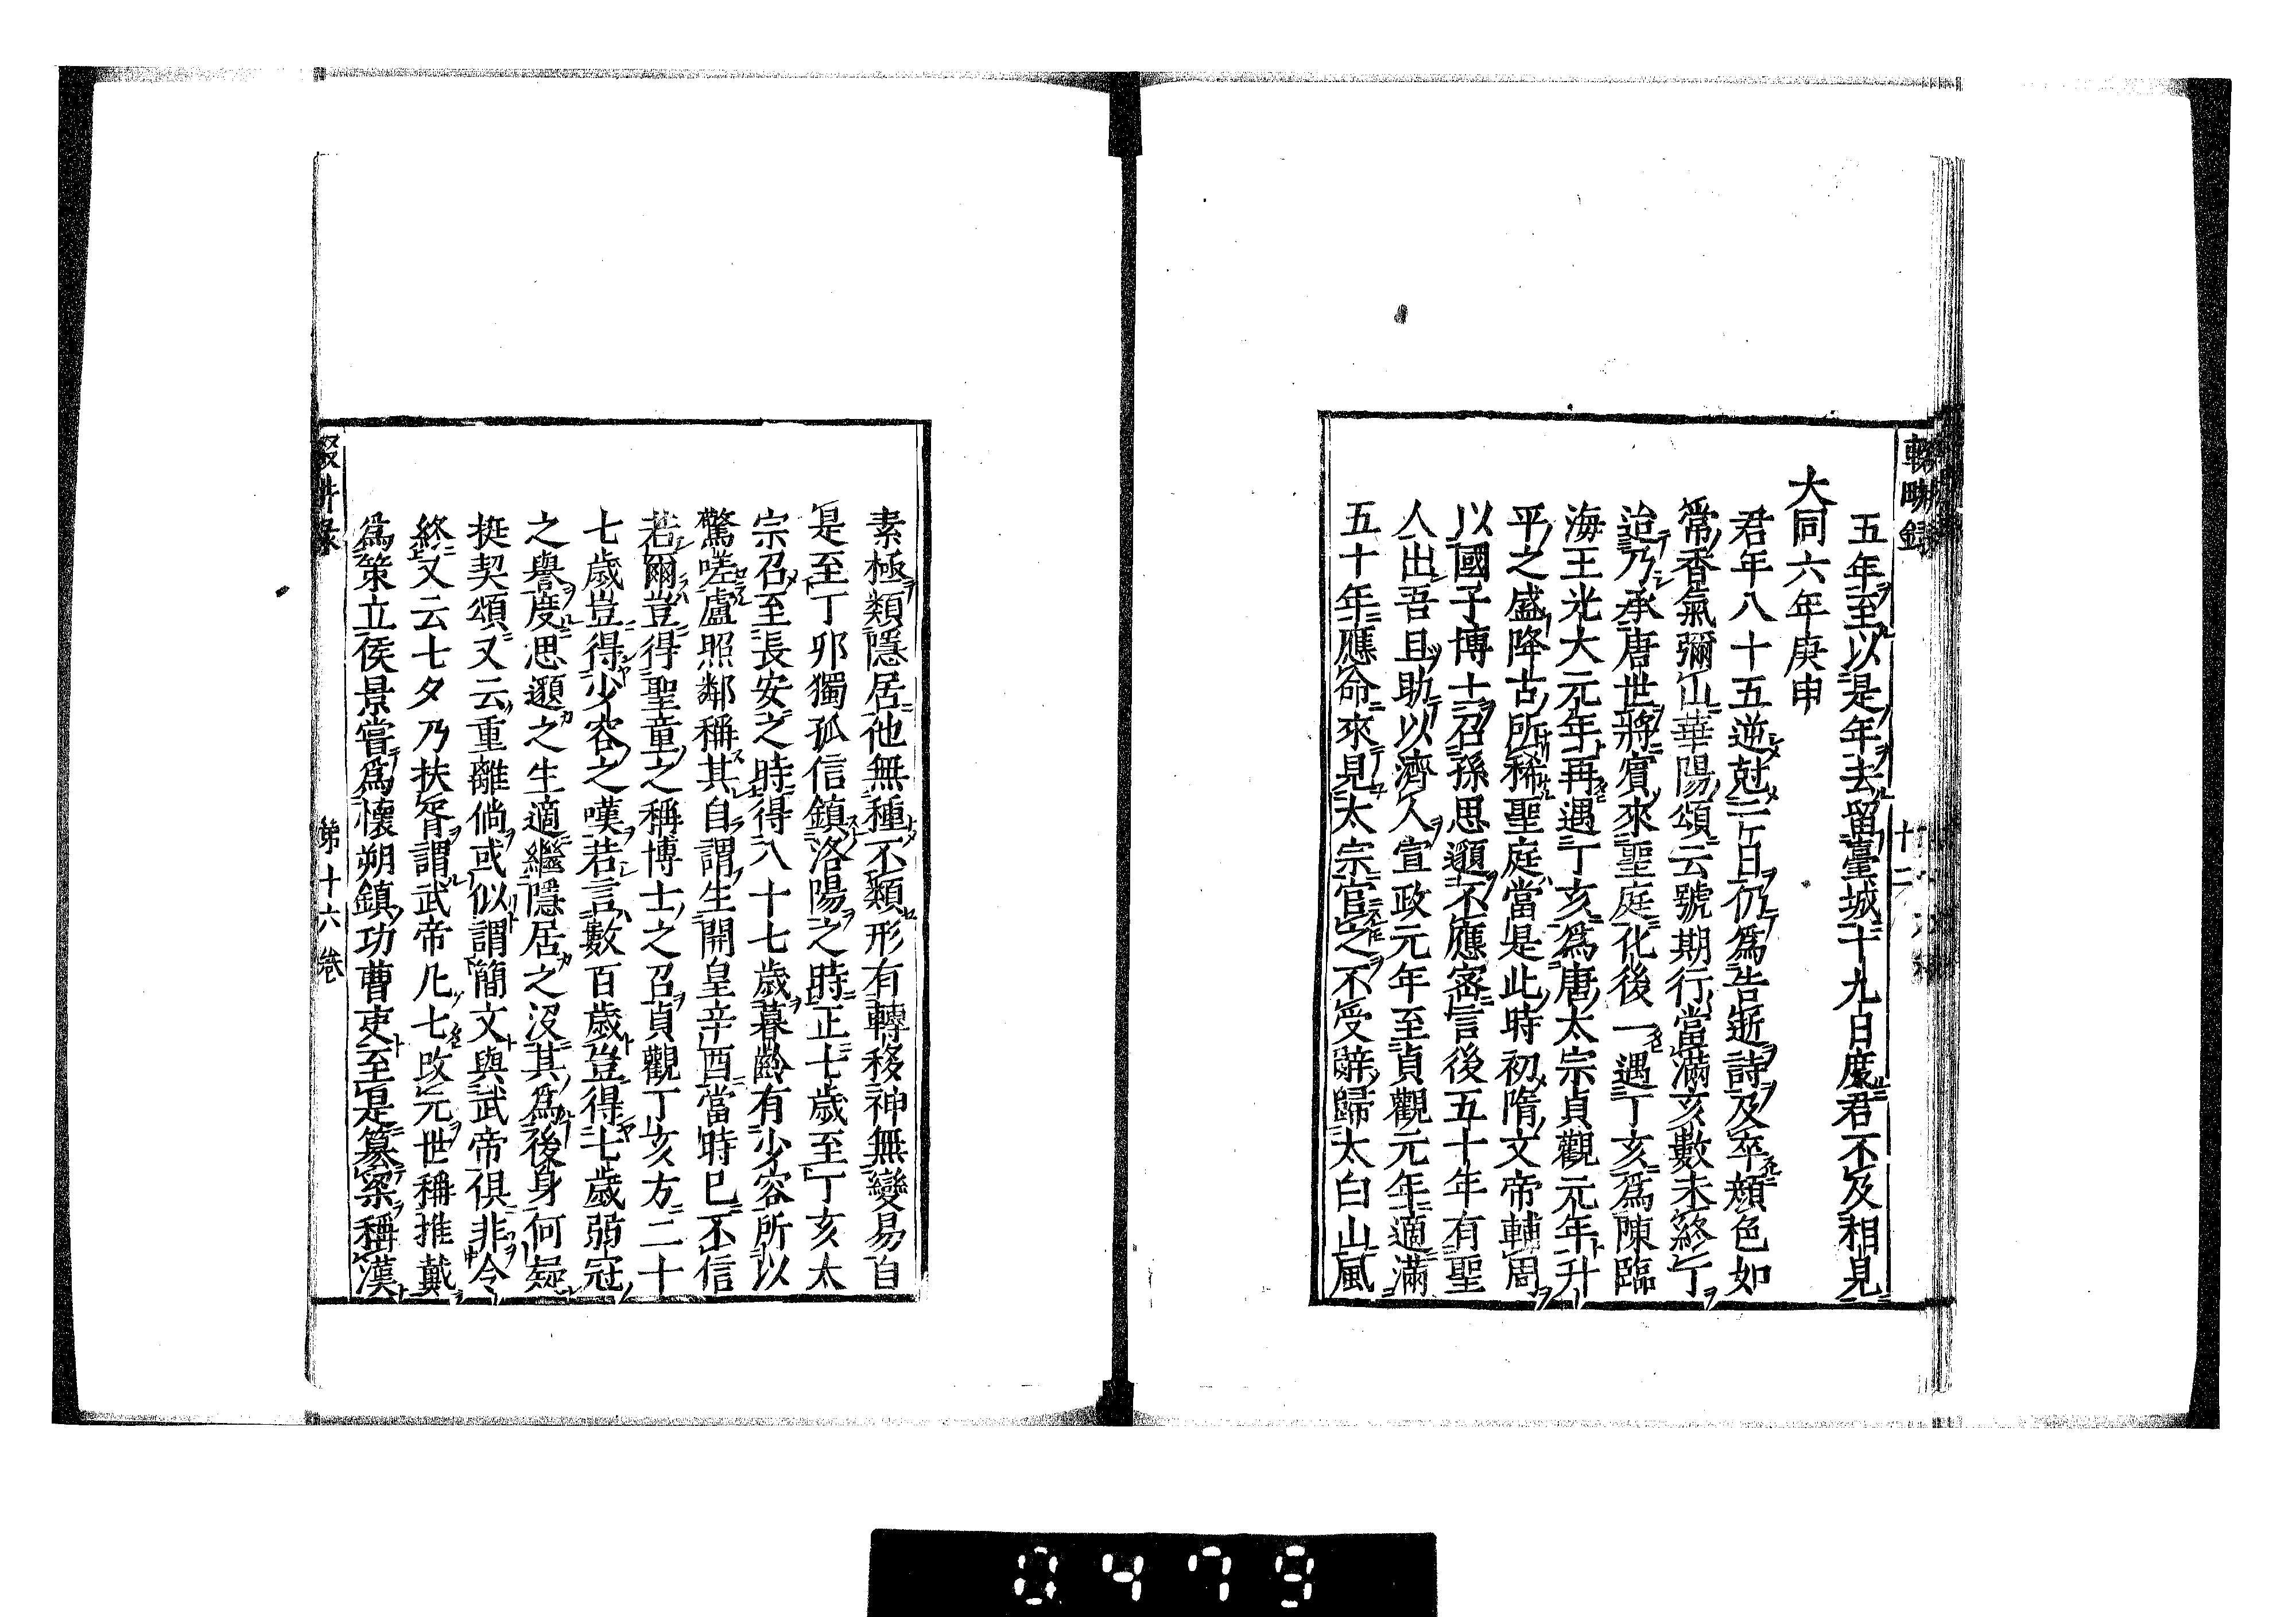 輟畊録
十二
五年至以是年去留臺城十九日度君不及相見
大同六年庚申
君年八十五逆尅亡日仍爲告逝詩及卒顔色如
常香氣彌山華陽頌云號期行當滿亥數未終丁
迨乃承唐世將賓來聖庭化後一遇丁亥爲陳臨
海王光大元年再遇丁亥爲唐太宗貞觀元年升
平之盛降古所稀聖庭當是此時初隋文帝輔周
以國子博士召孫思邈不應密言後五十年有聖
人出吾且助以濟人宣政元年至貞觀元年適滿
五十年應命來見太宗官之不受辭歸太白山風
素極類隱居他無種不類形有轉移神無變易自
是至丁卯獨孤信鎮洛陽之時正七歲至丁亥太
宗召至長安之時得八十七歲暮齡有少容所以
驚嗟盧照鄰稱其自謂生開皇辛酉當時已不信
若爾豈得聖童之稱博士之召貞觀丁亥方二十
七歲豈得少容之嘆若言數百歲豈得七歲弱冠
之譽度思邈之生適繼隱居之沒其爲後身何疑
挺契頌又云重離倘或似謂簡文與武帝俱非令
終又云七夕乃扶胥謂武帝凡七改元世稱推戴
爲策立侯景嘗爲懷朔鎮功曹吏至是簒梁稱漢
輟畊録
第十六卷
0479